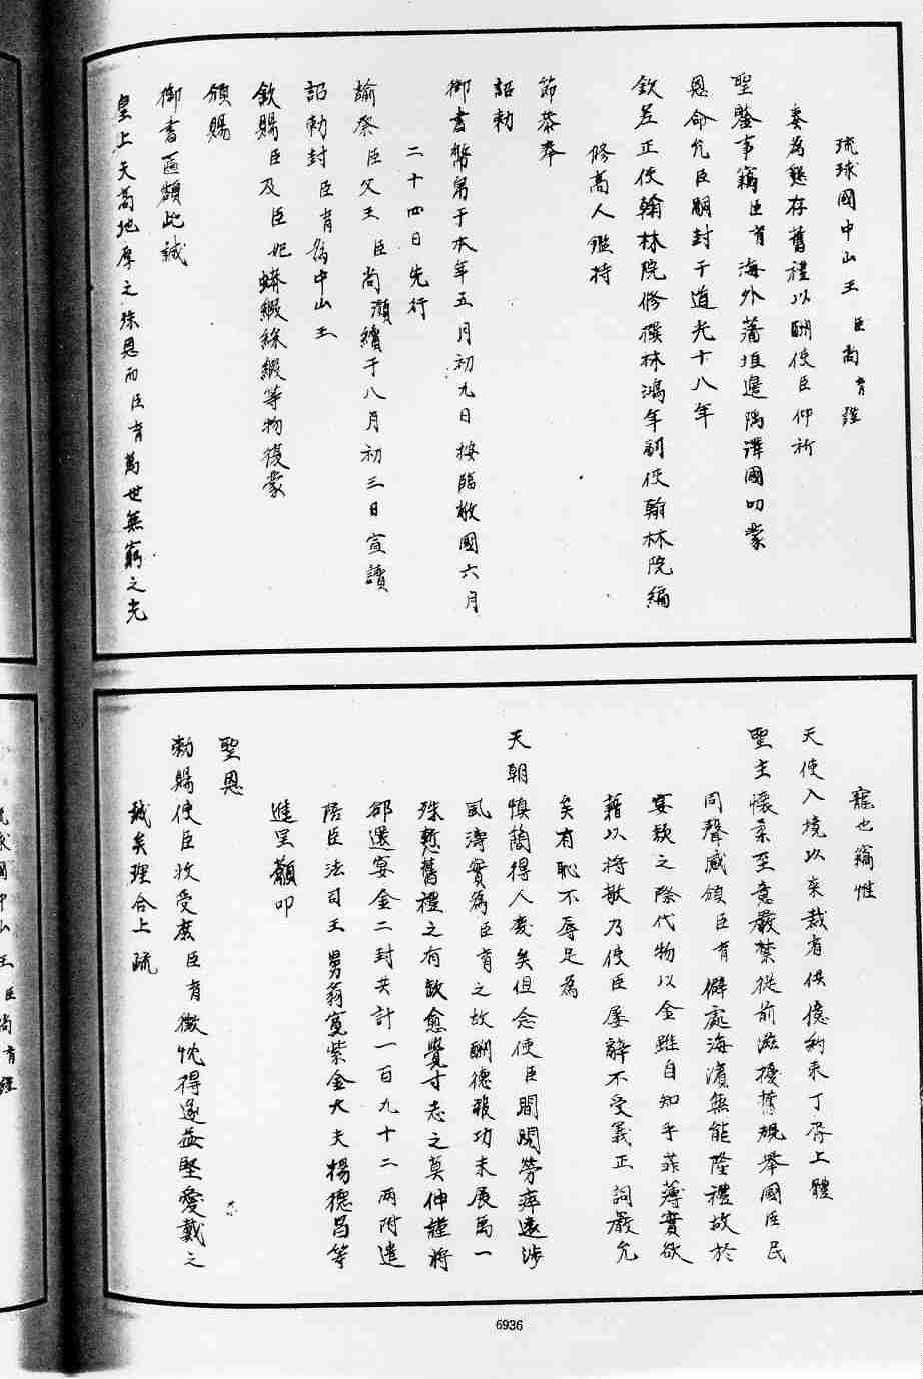 琉球國中山王 臣尚育謹
奏為懇存舊禮以酬使臣仰祈
聖鑒事竊臣育海外藩垣邊隅澤國叨蒙
恩命允臣嗣封于道光十八年
欽差正使翰林院修撰林鴻年副使翰林院編
修高人鑑持
節恭奉
詔勅
御書幣帛于本年五月初九日按臨敝國六月
二十四日先行
諭祭臣父王臣尚灝續于八月初三日宣讀
詔勅封臣育為中山王
欽賜臣及臣妃蟒緞綵緞等物復蒙
頒賜
御書匾額此誠
皇上天高地厚之殊恩而臣育萬世無窮之光
寵也竊惟
天使入境以來裁省供億約束丁胥上體
聖主懷柔至意嚴禁從前滋擾舊規舉國臣民
同聲感頌臣育僻處海濱無能隆禮故於
宴款之際代物以金雖自知乎菲薄實欲
藉以將敬乃使臣屢辭不受義正詞嚴允
矣有恥不辱足為
天朝慎簡得人慶矣但念使臣間關勞瘁遠涉
風濤實為臣育之故酬德報功未展萬一
殊慙舊禮之有缺愈覺寸志之莫伸謹將
卻還宴金二封共計一百九十二兩附遣
陪臣法司王舅翁寬紫金大夫楊德昌等
進呈籲叩
聖恩
勅賜使臣收受庶臣育微忱得遂益堅愛戴之
誠矣理合上疏
琉球國中山王臣尚育謹
6936